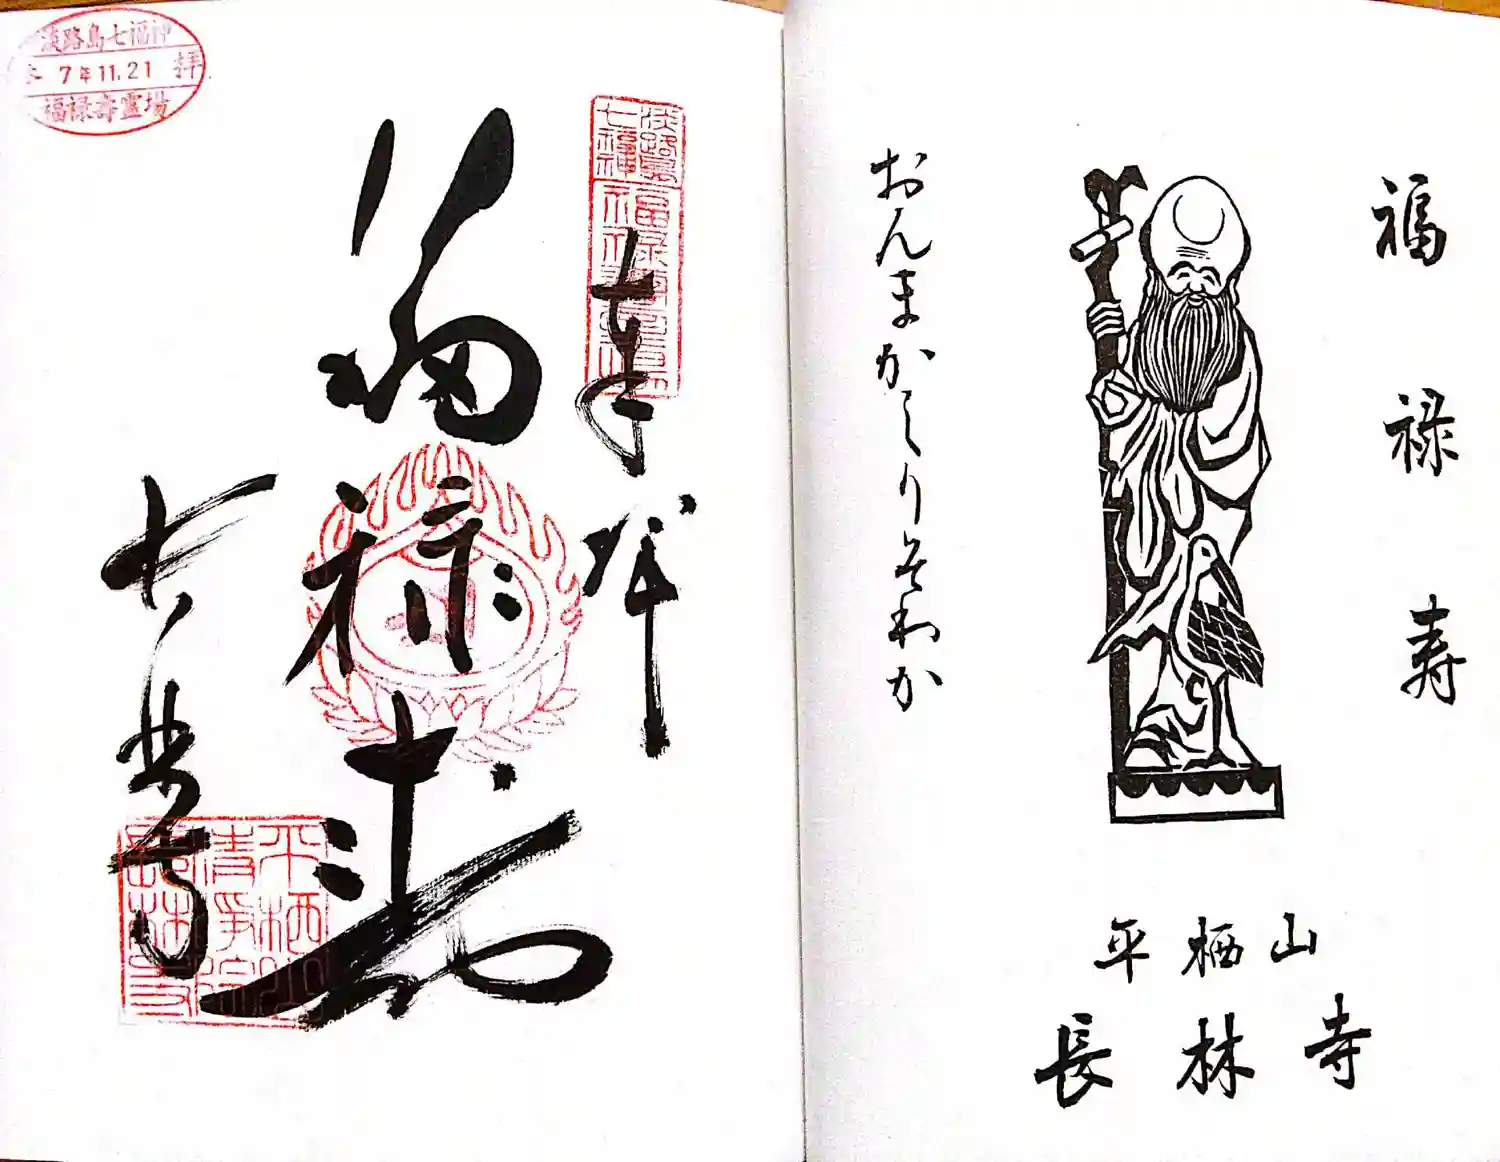 福禄寿
おんまかしりそわか
平栖山
長林寺
淡路島七福神
7年11.21 拝
福禄寿霊場
淡路島
七福神
奉拝
福禄寿
長林寺
平栖山